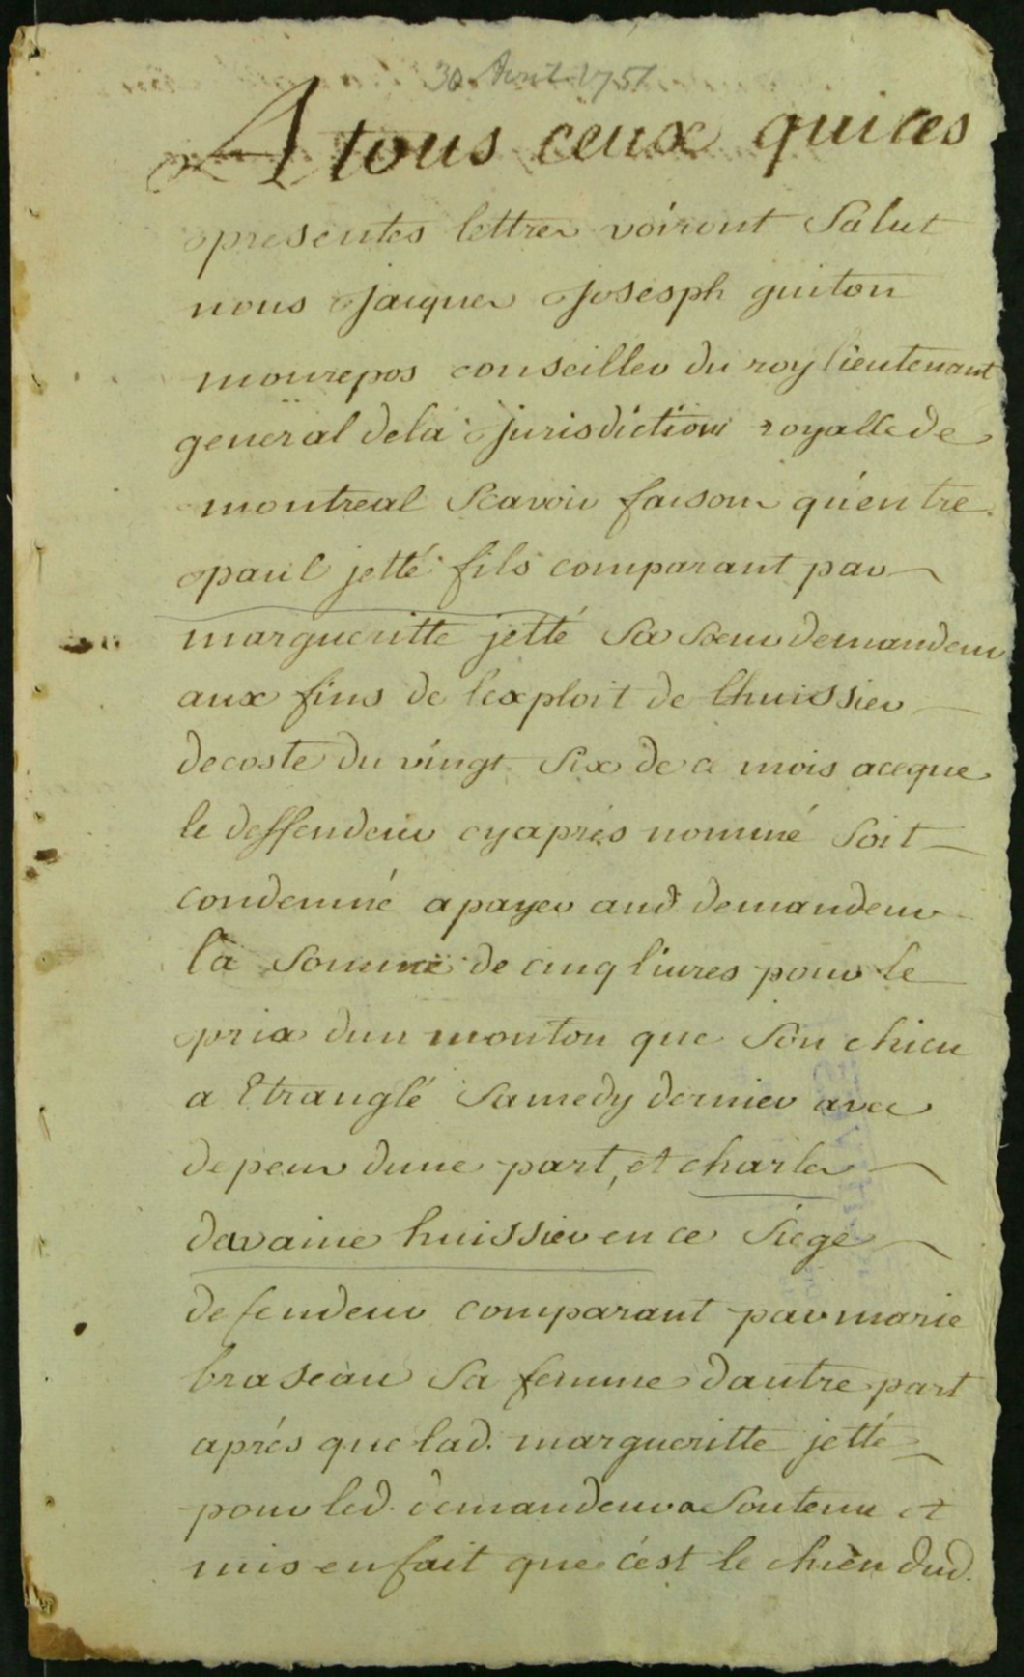 30 Avril 1751
A tous ceux qui ces
presentes lettres voiront Salut
nous Jacques Josesph guiton
monrepos conseiller du roy lieutenant
general dela Jurisdiction royalle de
montreal Scavoir faisons qu'entre
paul jetté fils comparant par
margueritte jetté Sa Soeur demandeur
aux fins de lexploit de lhuissier
decoste du vingt Six de ce mois aceque
le deffendeur cyaprès nommé Soit
condemné apayer aud demandeur
la Somme de cinq livres pour le
prix dun mouton que Son chien
a Etranglé Samedy dernier avec
depens dune part, et charles
davaine huissier en ce Siege
defendeur comparant par marie
braseau Sa femme dautre part
aprés que lad. margueritte jetté
pour led. demandeur a Soutenu et
mis en fait que c'est le chien dud.